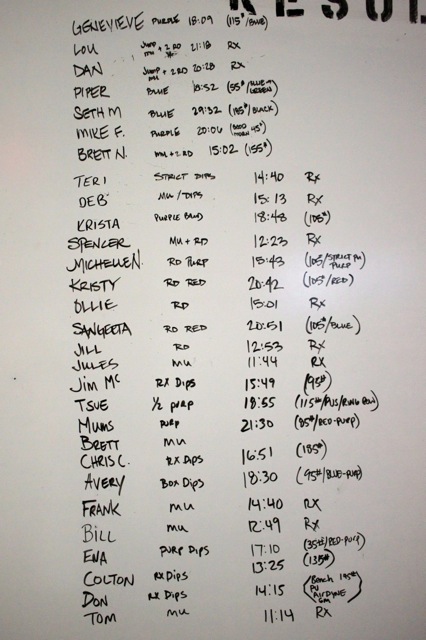 RESUL
GENEVIEVE PURPLE 18:09 (115#/BLUE)
LOU JUMP MU + 2 RD 21:18 RX
DAN JUMP MU + 2RD 20:28 RX
PIPER BLUE 18:52 (55#/BLUE+GREEN)
SETH M BLUE 29:32 (185#/BLACK)
MIKE F. PURPLE 20:06
BRETT N. MU + 2 RD 15:02 (155#)
TERI STRICT DIPS 14:40 RX
DEB MU/DIPS 15:13 RX
KRISTA PURPLE BAND 18:48 (105#)
SPENCER MU + RD 12:23 RX
MICHELLE N. RD PURP 15:43 (105/STRICT PU PURP)
KRISTY RD RED 20:42 (105#/RED)
OLLIE RD 15:01 RX
SANGEETA RD RED 20:51 (105#/BLUE)
JILL RD 12:53 RX
JULES MU 11:44 RX
JIM MC RX DIPS 15:49 (95#)
TSUE 1/2 PURP 18:55 (115#/PUS/RING ROW)
MUMS PURP 21:30 (85#/RED-PURP)
BRETT MU
CHRIS C. RX DIPS 16:51 (185#)
AVERY BOX DIPS 18:30 (95#/BLUE-PURP)
FRANK MU 14:40 RX
BILL MU 12:49 RX
ENA PURP DIPS 17:10 (35#/RED-PURP)
COLTON RX DIPS 13:25 (135#)
DON RX DIPS 14:15 (Bench 195# PU AIRDYNE
TOM MU 11:14 RX